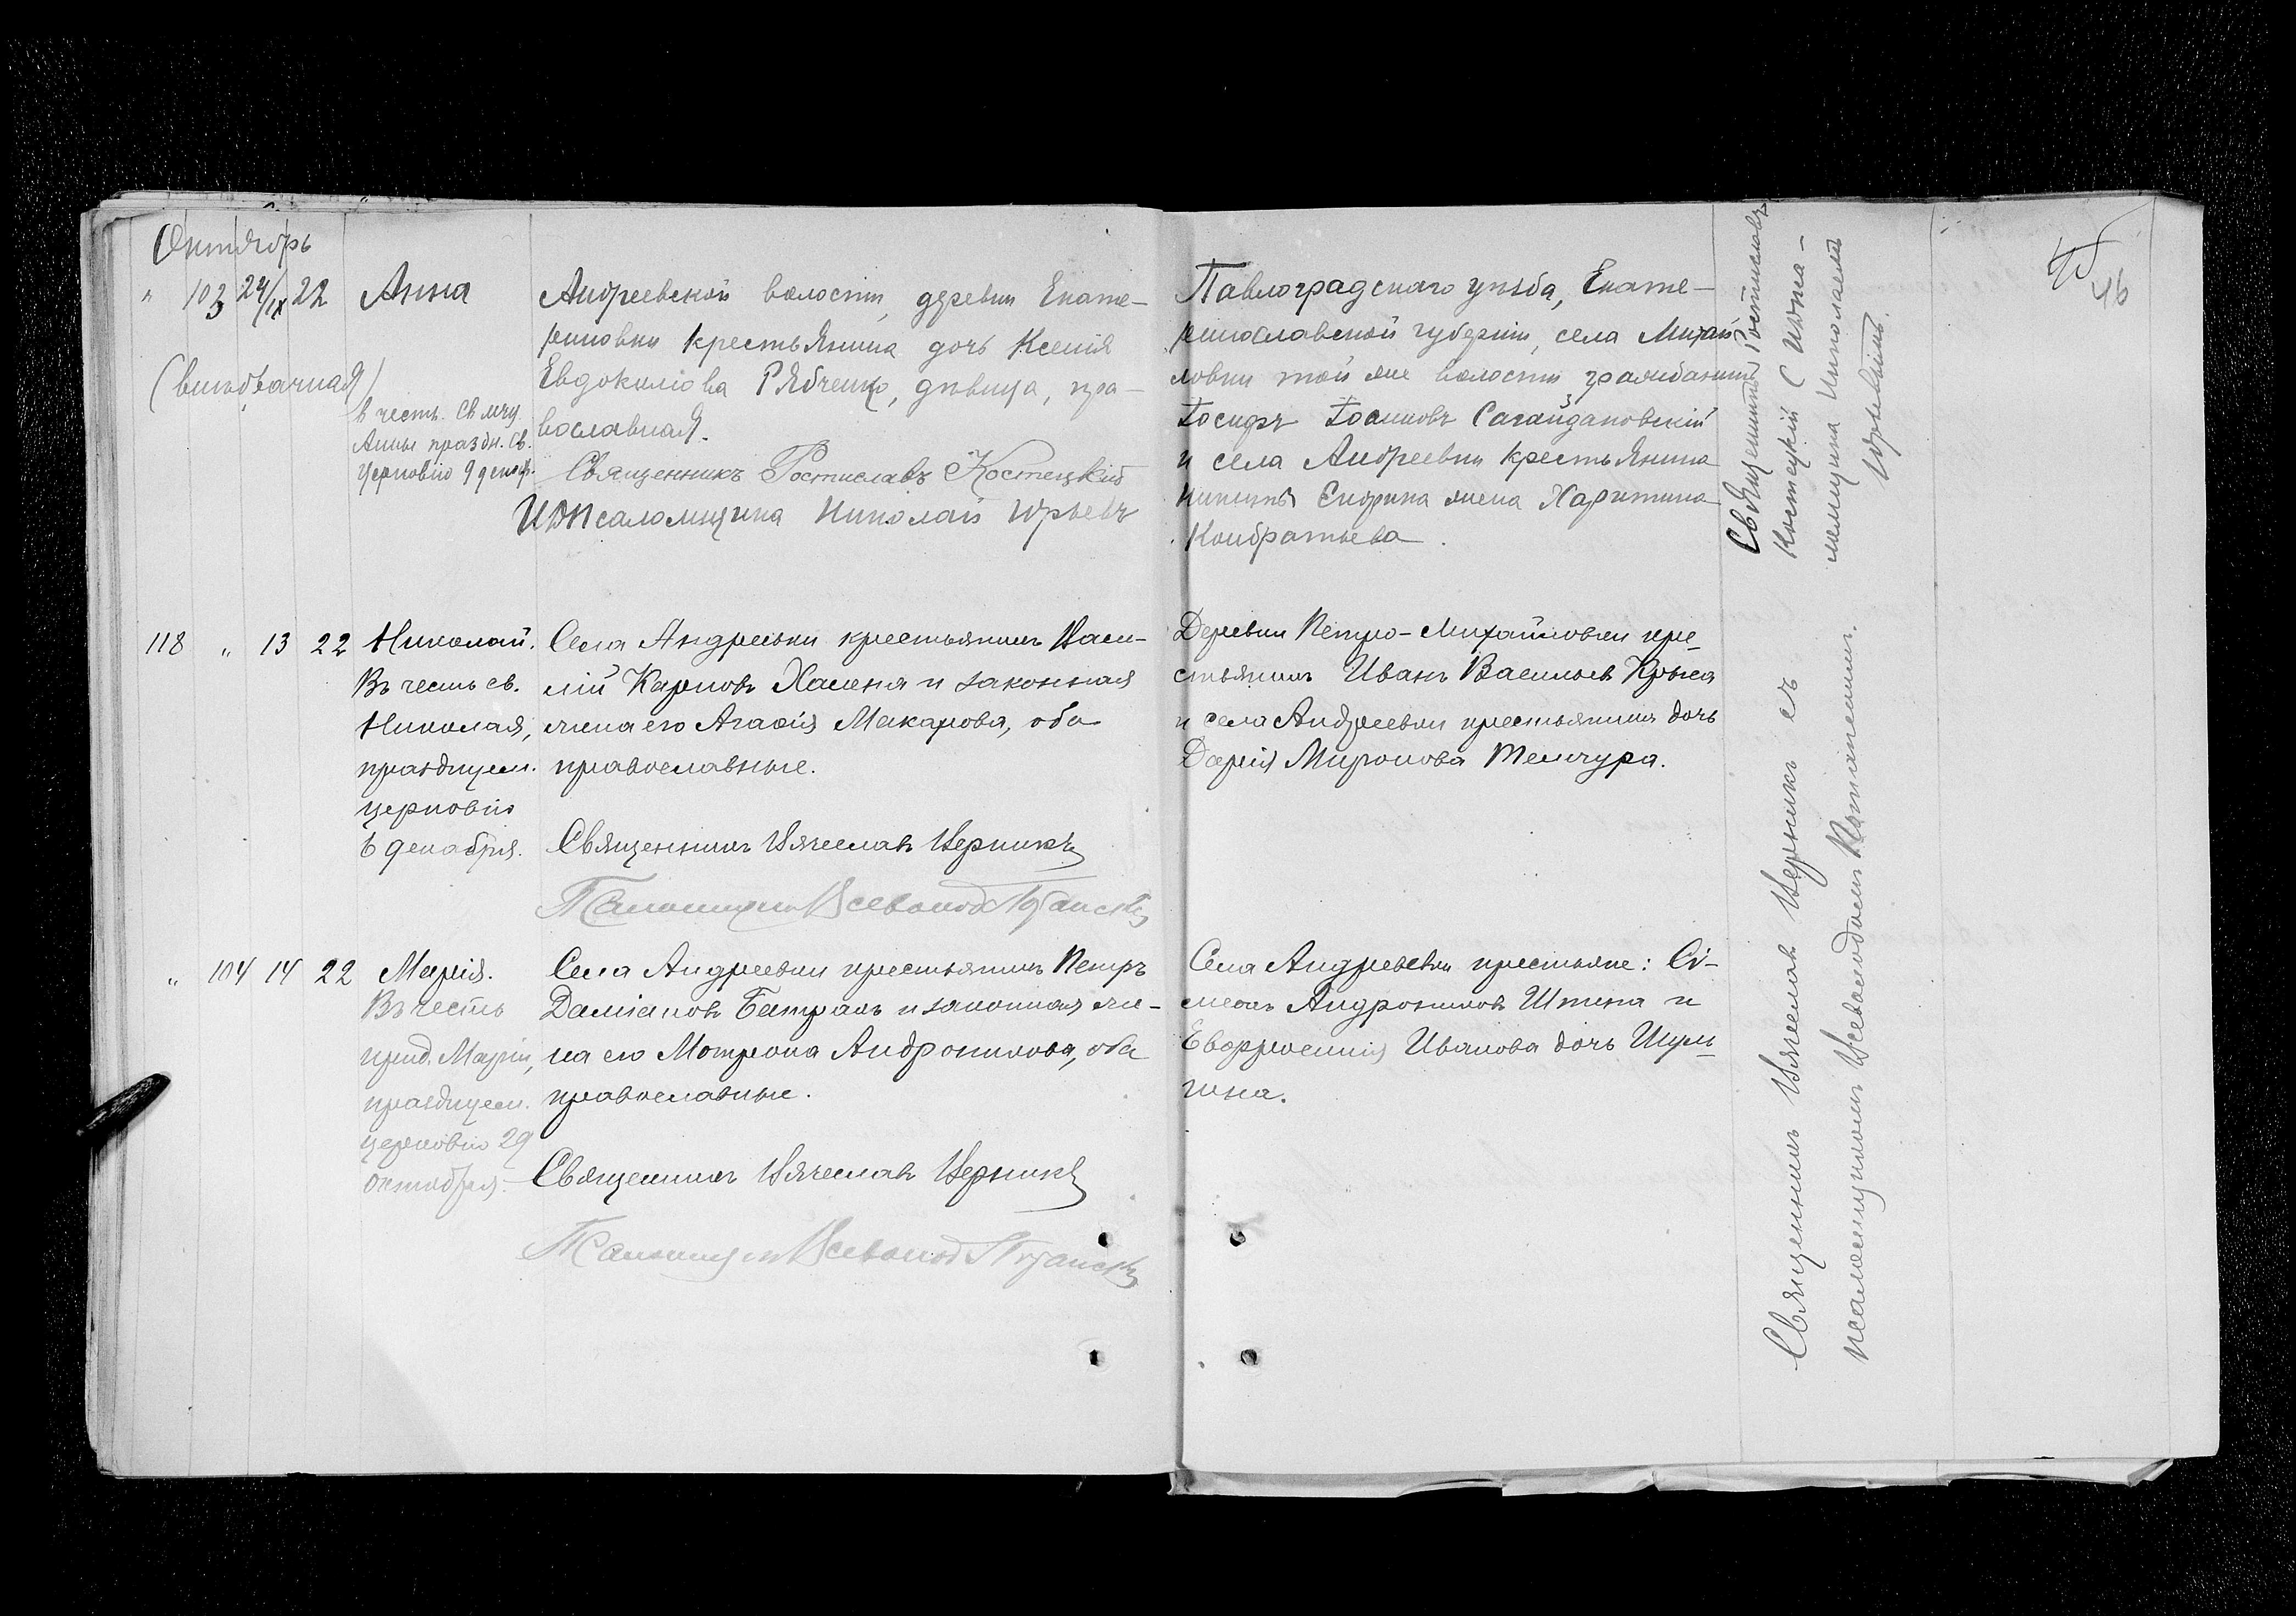 Октябрь
46
" 103 24/IX 22 Анна
(внѣбрачная)
въ честь св. мчц.
Анны праздн. св.
Церковію 9 декаб.
Андреевской волости, деревни Екате-
риновки крестьянина дочь Ксенія
Евдокимова Рябченко, дѣвица, пра-
вославная.
Священникъ Ростиславъ Костецкій
И. д. Псаломщика Николай Юрьевъ
Павлоградскаго уѣзда, Екате-
ринославской губерніи, села Михай-
ловки той же волости гражданинъ
Іосифъ Іоанновъ Сагайдаковскій
и села Андреевки крестьянина
Никиты жена Харитина
Кондратьева.
Священникъ Ростиславъ
Костецкій съ И. д. пса-
ломщика Николаемъ
Юрьевымъ.
118 " 13 22 Николай.
Въ честь св.
Николая,
празднуем.
церковію
6 декабря.
Села Андреевки крестьянинъ Васи-
лій Карповъ Хасеня и законная
жена его Агаѳія Макарова, оба
православные.
Священникъ Вячеславъ Черникъ
Псаломщикъ Всеволод
Деревни Петро-Михайловки кре-
стьянинъ Иванъ Васильевъ Крыса
и села Андреевки крестьянина дочь
Дарія Миронова Темчура.
" 104 14 22 Марія.
Въ честь
прпд. Маріи,
празднуем.
церковію 29
октября.
Села Андреевки крестьянинъ Петръ
Даміановъ Батракъ и законная же-
на его Мотрона Андроникова, оба
православные.
Священникъ Вячеславъ Черникъ
Псаломщикъ Всеволод
Села Андреевки крестьяне: Сі-
меонъ Андрониковъ Штепа и
Евфросинія Иванова дочь Шуль-
гина.
Священникъ Вячеславъ Черникъ съ
псаломщикомъ Всеволодомъ